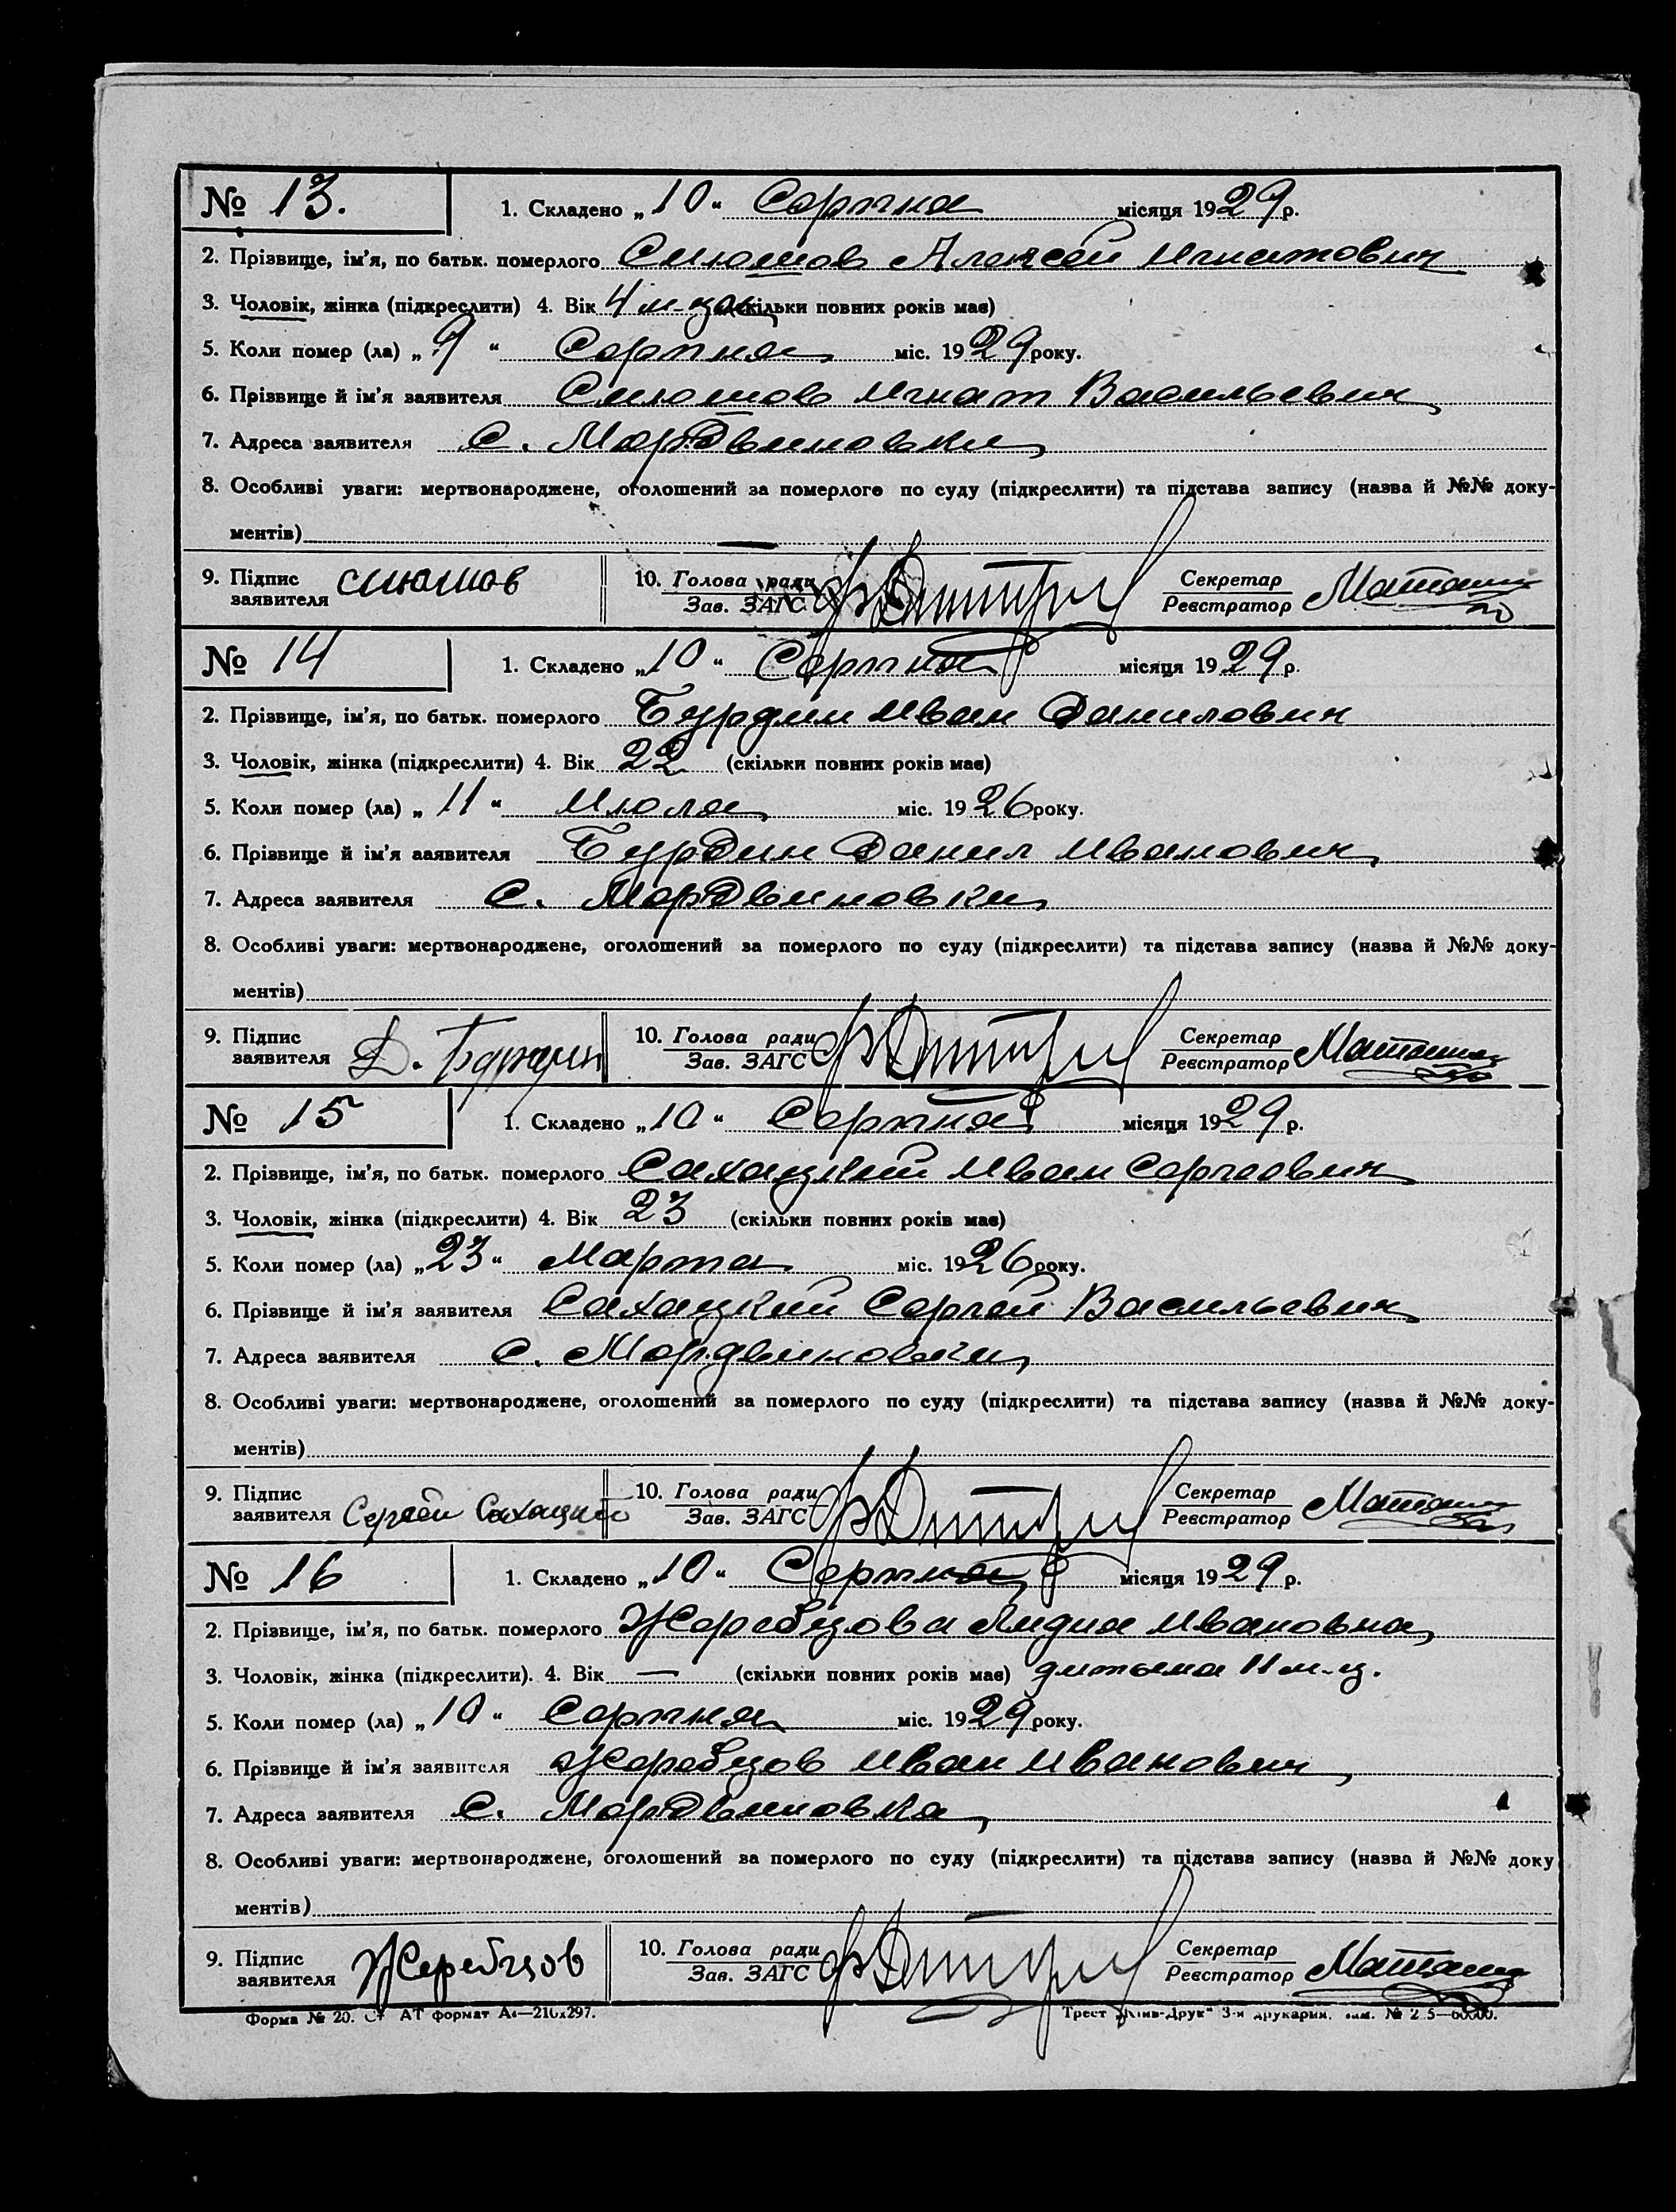 № 13. 1. Складено „10“ Серпня місяця 1929 р.
2. Прізвище, ім'я, по батьк. померлого Слюшов Алексей Игнатович
3. Чоловік, жінка (підкреслити) 4. Вік 4 м-ца (скільки повних років має)
5. Коли помер (ла) „9“ Серпня міс. 1929 року.
6. Прізвище й ім'я заявителя Слюшов Игнат Васильевич
7. Адреса заявителя С. Мордвиновки
8. Особливі уваги: мертвонароджене, оголошений за померлого по суду (підкреслити) та підстава запису (назва й №№ доку-
ментів) —
9. Підпис заявителя Слюшов 10. Голова ради Зав. ЗАГС Секретар Реєстратор
№ 14 1. Складено „10“ Серпня місяця 1929 р.
2. Прізвище, ім'я, по батьк. померлого Бурдин Иван Данилович
3. Чоловік, жінка (підкреслити) 4. Вік 22 (скільки повних років має)
5. Коли помер (ла) „11“ Июля міс. 1926 року.
6. Прізвище й ім'я заявителя Бурдин Данил Иванович
7. Адреса заявителя С. Мордвиновки
8. Особливі уваги: мертвонароджене, оголошений за померлого по суду (підкреслити) та підстава запису (назва й №№ доку-
ментів)
9. Підпис заявителя Д. Бурдин 10. Голова ради Зав. ЗАГС Секретар Реєстратор
№ 15 1. Складено „10“ Серпня місяця 1929 р.
2. Прізвище, ім'я, по батьк. померлого Сахацкий Иван Сергеевич
3. Чоловік, жінка (підкреслити) 4. Вік 23 (скільки повних років має)
5. Коли помер (ла) „23“ Марта міс. 1926 року.
6. Прізвище й ім'я заявителя Сахацкий Сергей Васильевич
7. Адреса заявителя С. Мордвиновки
8. Особливі уваги: мертвонароджене, оголошений за померлого по суду (підкреслити) та підстава запису (назва й №№ доку-
ментів)
9. Підпис заявителя Сергей Сахацкий 10. Голова ради Зав. ЗАГС Секретар Реєстратор
№ 16 1. Складено „10“ Серпня місяця 1929 р.
2. Прізвище, ім'я, по батьк. померлого Жеребцова Лидия Ивановна
3. Чоловік, жінка (підкреслити). 4. Вік — (скільки повних років має) дитына 11 м-ц.
5. Коли помер (ла) „10“ Серпня міс. 1929 року.
6. Прізвище й ім'я заявителя Жеребцов Иван Иванович
7. Адреса заявителя С. Мордвиновка
8. Особливі уваги: мертвонароджене, оголошений за померлого по суду (підкреслити) та підстава запису (назва й №№ доку
ментів)
9. Підпис заявителя Жеребцов 10. Голова ради Зав. ЗАГС Секретар Реєстратор
Форма № 20. АТ формат А4—210х297. Трест „Київ-Друк“ 3-я друкарня.